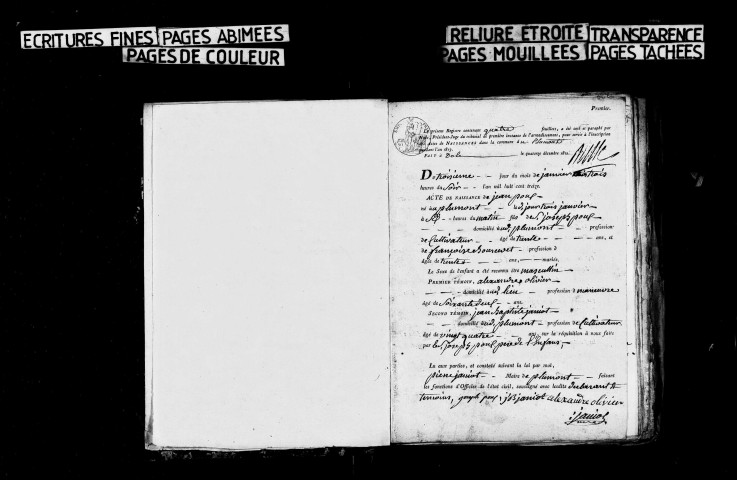 ECRITURES FINES PAGES ABIMEES
PAGES DE COULEUR
RELIURE ETROITE TRANSPARENCE
PAGES MOUILLEES PAGES TACHEES
Premier.
Le présent Registre contenant quatre feuillets, a été coté et paraphé par
Nous, Président-Juge du tribunal de première instance de l'arrondissement, pour servir à l'inscription
des actes de NAISSANCES dans la commune de Plumont
pendant l'an 1813.
FAIT à Dole le quatorze décembre 1812.
Du troisieme jour du mois de janvier à trois
heures du soir l'an mil huit cent treize.
ACTE DE NAISSANCE de jean
né à plumont led. jour trois janvier
à six heures du matin fils de S. joseph
domicilié aud. plumont profession
de Cultivateur âgé de trente ans, et
de francoise profession d
âgée de trente ans, mariés.
Le Sexe de l'enfant a été reconnu être masculin
PREMIER TÉMOIN, alexandre olivier
domicilié aud. lieu profession de manoeuvre
âgé de soixante deux ans
SECOND TÉMOIN, jean baptiste janiot
domicilié aud. plumont profession de Cultivateur
âgé de vingt quatre ans, sur la réquisition à nous faite
par led. joseph pere de l'enfant
Lu aux parties, et constaté suivant la loi par moi,
pierre janiot Maire de plumont faisant
les fonctions d'Officier de l'état civil, soussigné avec lesdits
temoins, joseph jB janiot alexandre olivier
janiot